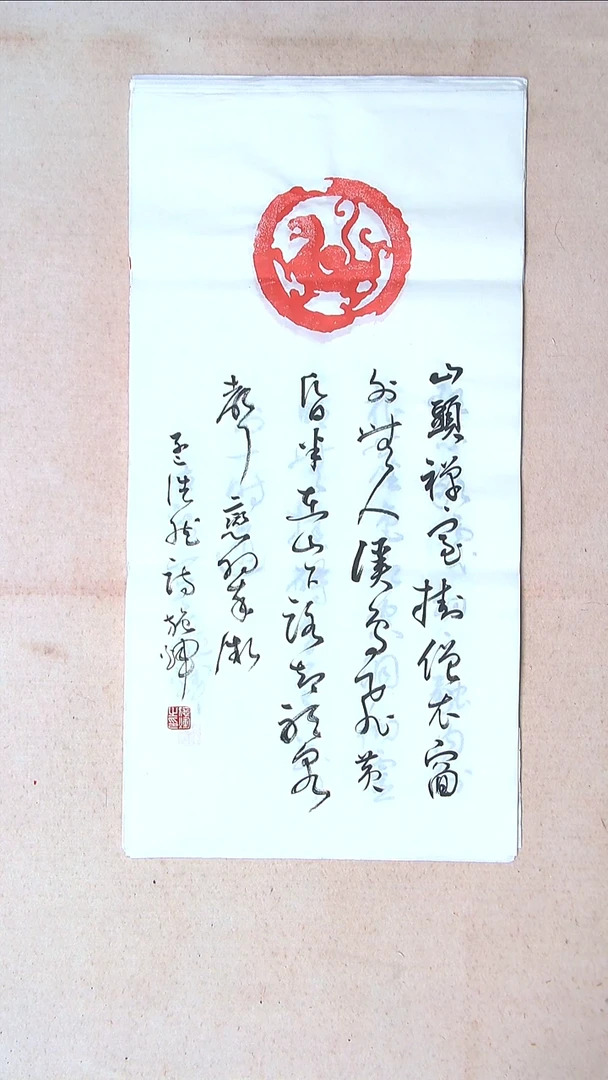 山頭禪室掛僧衣窗
外無人溪鳥飛黃
昏半在山下路却聽泉
聲戀翠微
孟浩然詩